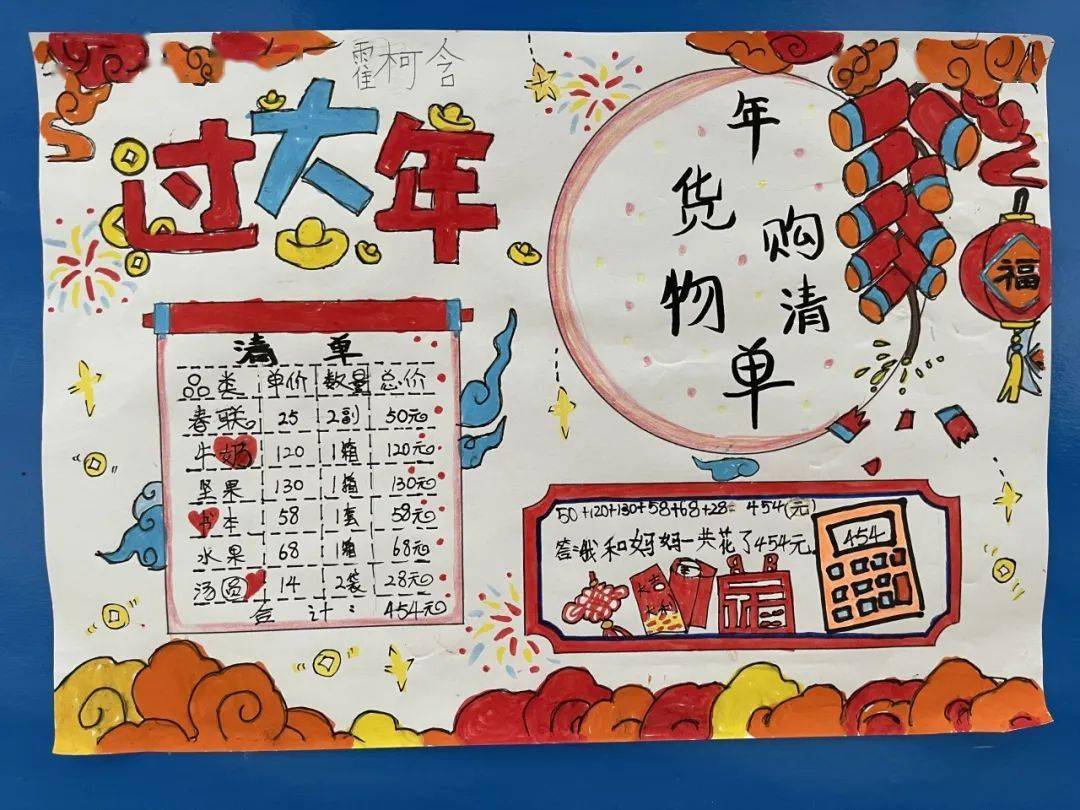 霍柯含
过大年
年货购物清单
福
清单
品类 单价 数量 总价
春联 25 2副 50元
牛奶 120 1箱 120元
坚果 130 1箱 130元
书本 58 1套 58元
水果 68 1箱 68元
汤圆 14 2袋 28元
合计: 454元
50+120+130+58+68+28=454(元)
答:我和妈妈一共花了454元。
454
大吉
大利
福